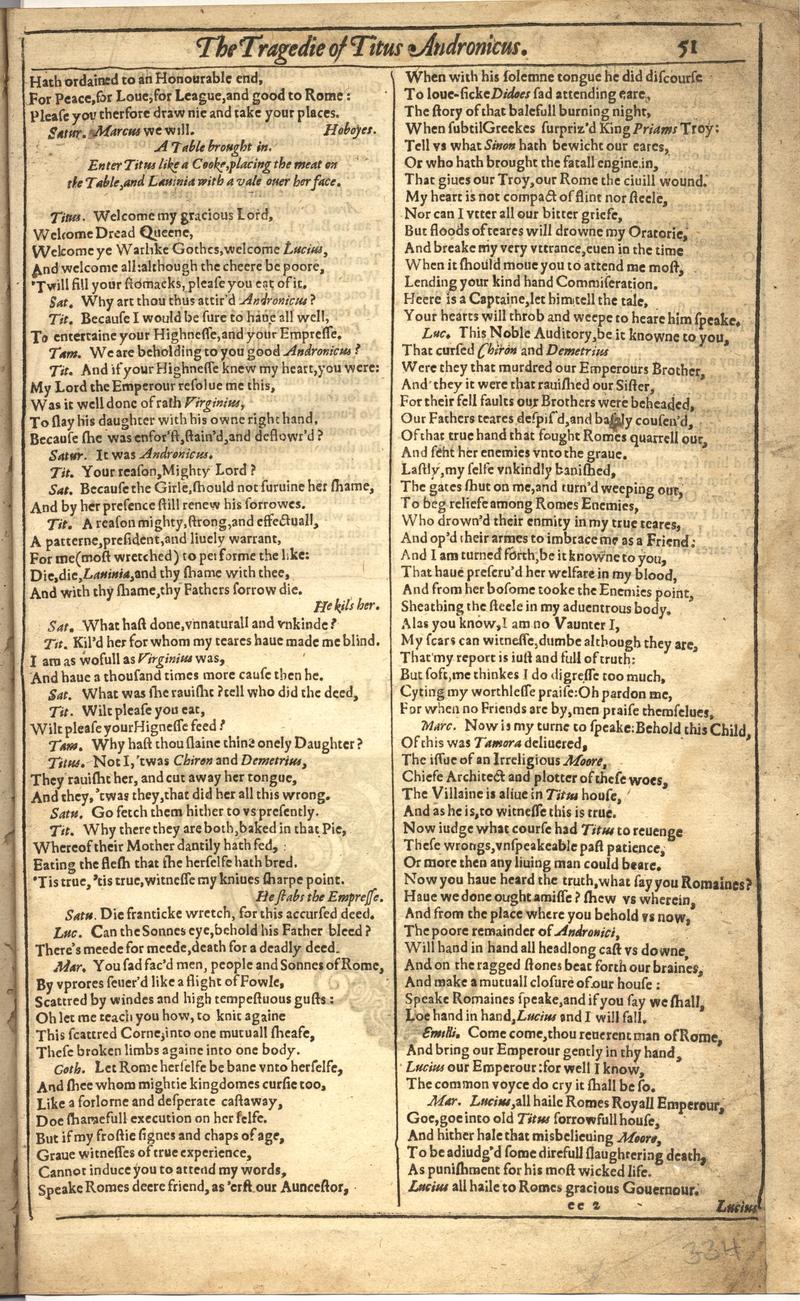 The Tragedie of Titus Andronicus. 51
Hath ordained to an Honourable end,
For Peace, for Loue, for League, and good to Rome:
Please you therfore draw nie and take your places.
Satur. Marcus we will. Hoboyes.
A Table brought in.
Enter Titus like a Cooke, placing the meat on
the Table, and Lauinia with a vale ouer her face.
Titus. Welcome my gracious Lord,
Welcome Dread Queene,
Welcome ye Warlike Gothes, welcome Lucius,
And welcome all: although the cheere be poore,
'Twill fill your stomacks, please you eat of it.
Sat. Why art thou thus attir'd Andronicus?
Tit. Because I would be sure to haue all well,
To entertaine your Highnesse, and your Empresse.
Tam. We are beholding to you good Andronicus?
Tit. And if your Highnesse knew my heart, you were:
My Lord the Emperour resolue me this,
Was it well done of rash Virginius,
To slay his daughter with his owne right hand,
Because she was enfor'st, stain'd, and deflowr'd?
Satur. It was Andronicus.
Tit. Your reason, Mighty Lord?
Sat. Because the Girle, should not suruine her shame,
And by her presence still renew his sorrowes.
Tit. A reason mighty, strong, and effectuall,
A patterne, president, and liuely warrant,
For me (most wretched) to performe the like:
Die, die, Lauinia, and thy shame with thee,
And with thy shame, thy Fathers sorrow die.
He kils her.
Sat. What hast done, vnnaturall and vnkinde?
Tit. Kil'd her for whom my teares haue made me blind.
I am as wofull as Virginius was,
And haue a thousand times more cause then he.
Sat. What was she rauisht? tell who did the deed,
Tit. Wilt please you eat,
Wilt please your Hignesse feed?
Tam. Why hast thou slaine thine onely Daughter?
Titus. Not I, 'twas Chiron and Demetrius,
They rauisht her, and cut away her tongue,
And they, 'twas they, that did her all this wrong.
Satu. Go fetch them hither to vs presently.
Tit. Why there they are both, baked in that Pie,
Whereof their Mother dantily hath fed,
Eating the flesh that she herselfe hath bred.
'Tis true, 'tis true, witnesse my kniues sharpe point.
He stabs the Empresse.
Satu. Die franticke wretch, for this accursed deed.
Luc. Can the Sonnes eye, behold his Father bleed?
There's meede for meede, death for a deadly deed.
Mar. You sad fac'd men, people and Sonnes of Rome,
By vprores seuer'd like a flight of Fowle,
Scattred by windes and high tempestuous gusts:
Oh let me teach you how, to knit againe
This scattred Corne, into one mutuall sheafe,
These broken limbs againe into one body.
Goth. Let Rome herselfe be bane vnto herselfe,
And shee whom mightie kingdomes cursie too,
Like a forlorne and desperate castaway,
Doe shamefull execution on her selfe.
But if my frostie signes and chaps of age,
Graue witnesses of true experience,
Cannot induce you to attend my words,
Speake Romes deere friend, as 'erst our Auncestor,
When with his solemne tongue he did discourse
To loue-sicke Didoes sad attending eare,
The story of that balefull burning night,
When subtil Greekes surpriz'd King Priams Troy:
Tell vs what Sinon hath bewicht our eares,
Or who hath brought the fatall engine in,
That giues our Troy, our Rome the ciuill wound.
My heart is not compact of flint nor steele,
Nor can I vtter all our bitter griefe,
But floods of teares will drowne my Oratorie,
And breake my very vttrance, euen in the time
When it should moue you to attend me most,
Lending your kind hand Commiseration.
Heere is a Captaine, let him tell the tale,
Your hearts will throb and weepe to heare him speake.
Luc. This Noble Auditory, be it knowne to you,
That cursed Chiron and Demetrius
Were they that murdred our Emperours Brother,
And they it were that rauished our Sister,
For their fell faults our Brothers were beheaded,
Our Fathers teares despis'd, and basely cousen'd,
Of that true hand that fought Romes quarrell out,
And sent her enemies vnto the graue.
Lastly, my selfe vnkindly banished,
The gates shut on me, and turn'd weeping out,
To beg reliefe among Romes Enemies,
Who drown'd their enmity in my true teares,
And op'd their armes to imbrace me as a Friend:
And I am turned forth, be it knowne to you,
That haue preseru'd her welfare in my blood,
And from her bosome tooke the Enemies point,
Sheathing the steele in my aduentrous body.
Alas you know, I am no Vaunter I,
My scars can witnesse, dumbe although they are,
That my report is iust and full of truth:
But soft, me thinkes I do digresse too much,
Cyting my worthlesse praise: Oh pardon me,
For when no Friends are by, men praise themselues,
Marc. Now is my turne to speake: Behold this Child,
Of this was Tamora deliuered,
The issue of an Irreligious Moore,
Chiefe Architect and plotter of these woes,
The Villaine is aliue in Titus house,
And as he is, to witnesse this is true.
Now iudge what course had Titus to reuenge
These wrongs, vnspeakeable past patience,
Or more then any liuing man could beare.
Now you haue heard the truth, what say you Romaines?
Haue we done ought amisse? shew vs wherein,
And from the place where you behold vs now,
The poore remainder of Andronici,
Will hand in hand all headlong cast vs downe,
And on the ragged stones beat forth our braines,
And make a mutuall closure of our house:
Speake Romaines speake, and if you say we shall,
Loe hand in hand, Lucius and I will fall.
Emilli. Come come, thou reuerent man of Rome,
And bring our Emperour gently in thy hand,
Lucius our Emperour: for well I know,
The common voyce do cry it shall be so.
Mar. Lucius, all haile Romes Royall Emperour,
Goe, goe into old Titus sorrowfull house,
And hither hale that misbelieuing Moore,
To be adiudg'd some direfull slaughtering death,
As punishment for his most wicked life.
Lucius all haile to Romes gracious Gouernour.
ee 2 Lucius
334